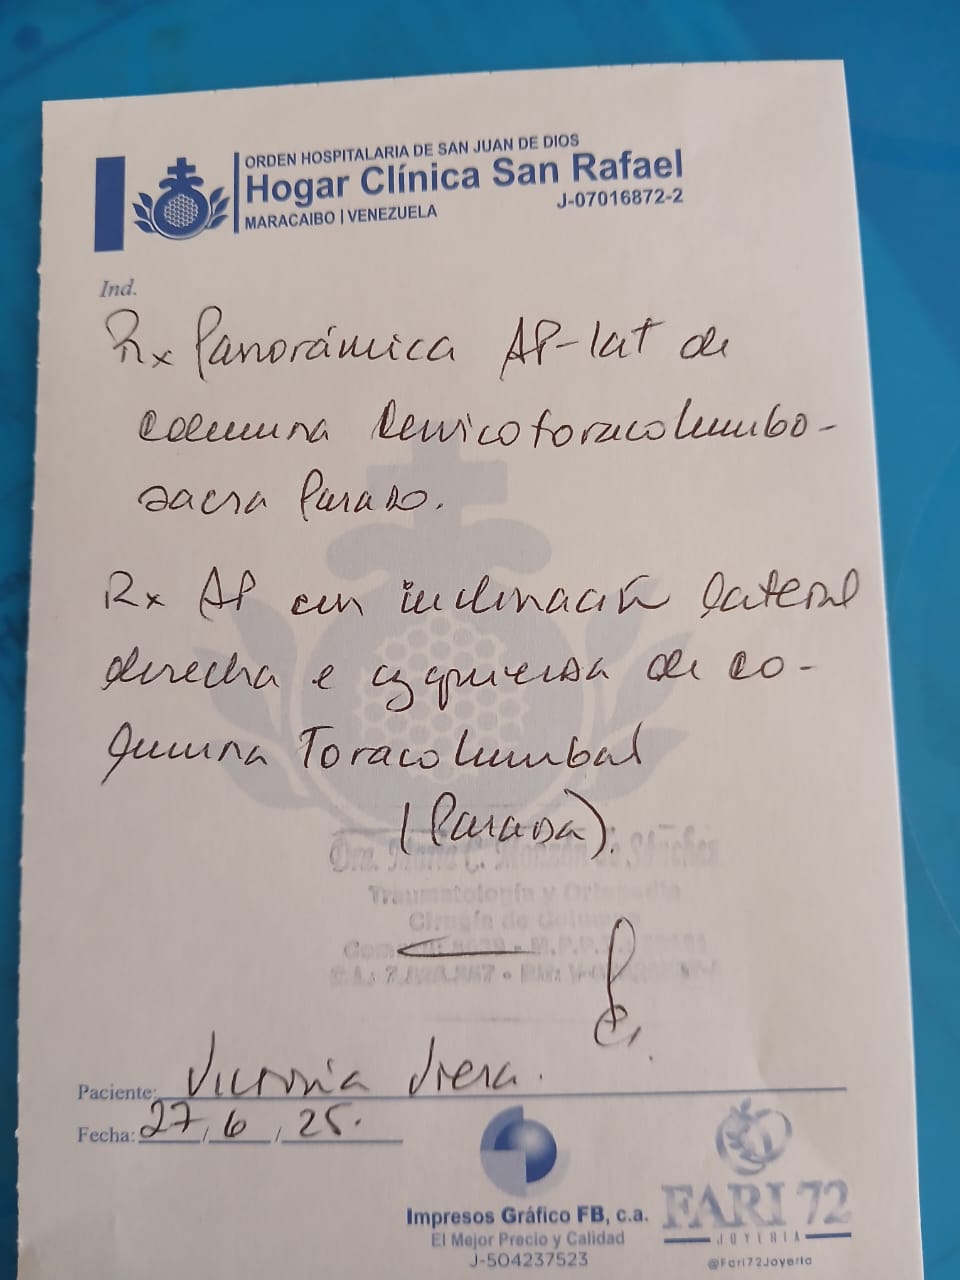 ORDEN HOSPITALARIA DE SAN JUAN DE DIOS
Hogar Clínica San Rafael
J-07016872-2
MARACAIBO | VENEZUELA
Ind.
Rx Panorámica AP-lat de
columna cervicotoracolumbo-
sacra Parado.
Rx AP con inclinación lateral
derecha e izquierda de co-
lumna Toracolumbal
(Parada).
Traumatología y Ortopedia
Cirugía de Columna
Paciente: Victoria Viera.
Fecha: 27/6/25.
Impresos Gráfico FB, c.a.
El Mejor Precio y Calidad
J-504237523
FARI 72
JOYERIA
@Fari72Joyeria